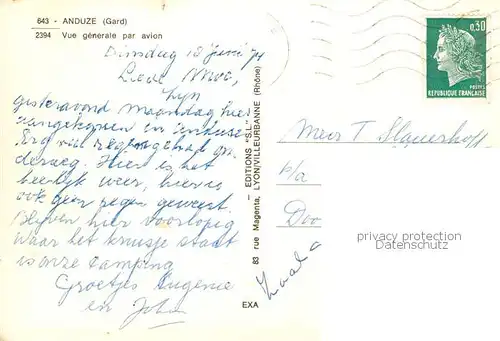 643 - ANDUZE (Gard)
2394 Vue générale par avion
Dinsdag 18 Juni 74
Lieve Moe,
gisteravond maandag hier
aangekomen in Anduze
Erg veel regen gehad on
derweg. Hier is het
heerlijk weer, hier is
ook geen regen geweest.
Blijven hier voorlopig
Waar het kruisje staat
is onze camping
Groetjes Eugenie
en John
EDITIONS "S.L."
83 rue Magenta, LYON/VILLEURBANNE (Rhône)
EXA
0,30
POSTES
REPUBLIQUE FRANÇAISE
Meer T Slauerhoff
p/a
Doo
privacy protection
Datenschutz